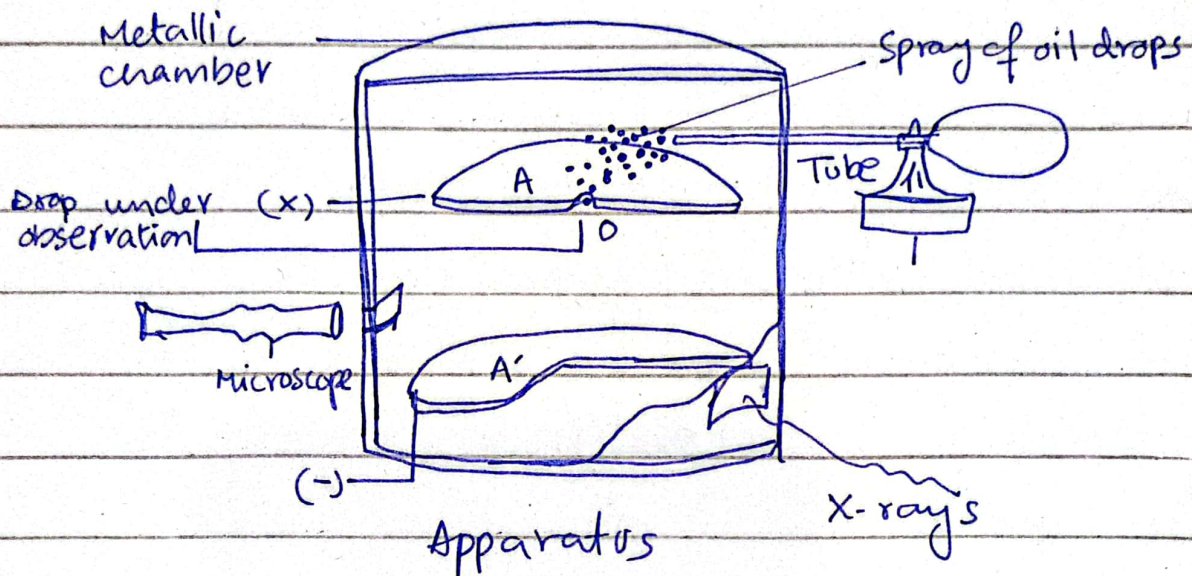 Metallic
chamber
Spray of oil drops
Tube
A
Drop under
observation
(x)
O
Microscope
A´
(-)
X-rays
Apparatus